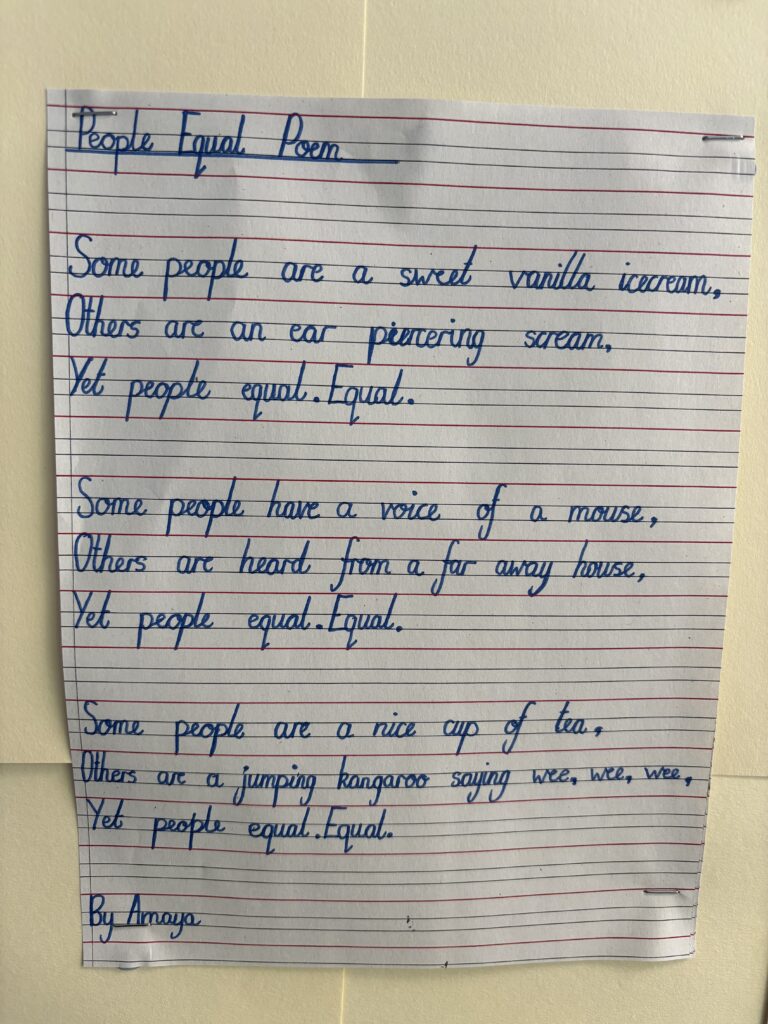 People Equal Poem
Some people are a sweet vanilla icecream,
Others are an ear piercering scream,
Yet people equal. Equal.
Some people have a voice of a mouse,
Others are heard from a far away house,
Yet people equal. Equal.
Some people are a nice cup of tea,
Others are a jumping kangaroo saying wee, wee, wee,
Yet people equal. Equal.
By Amaya